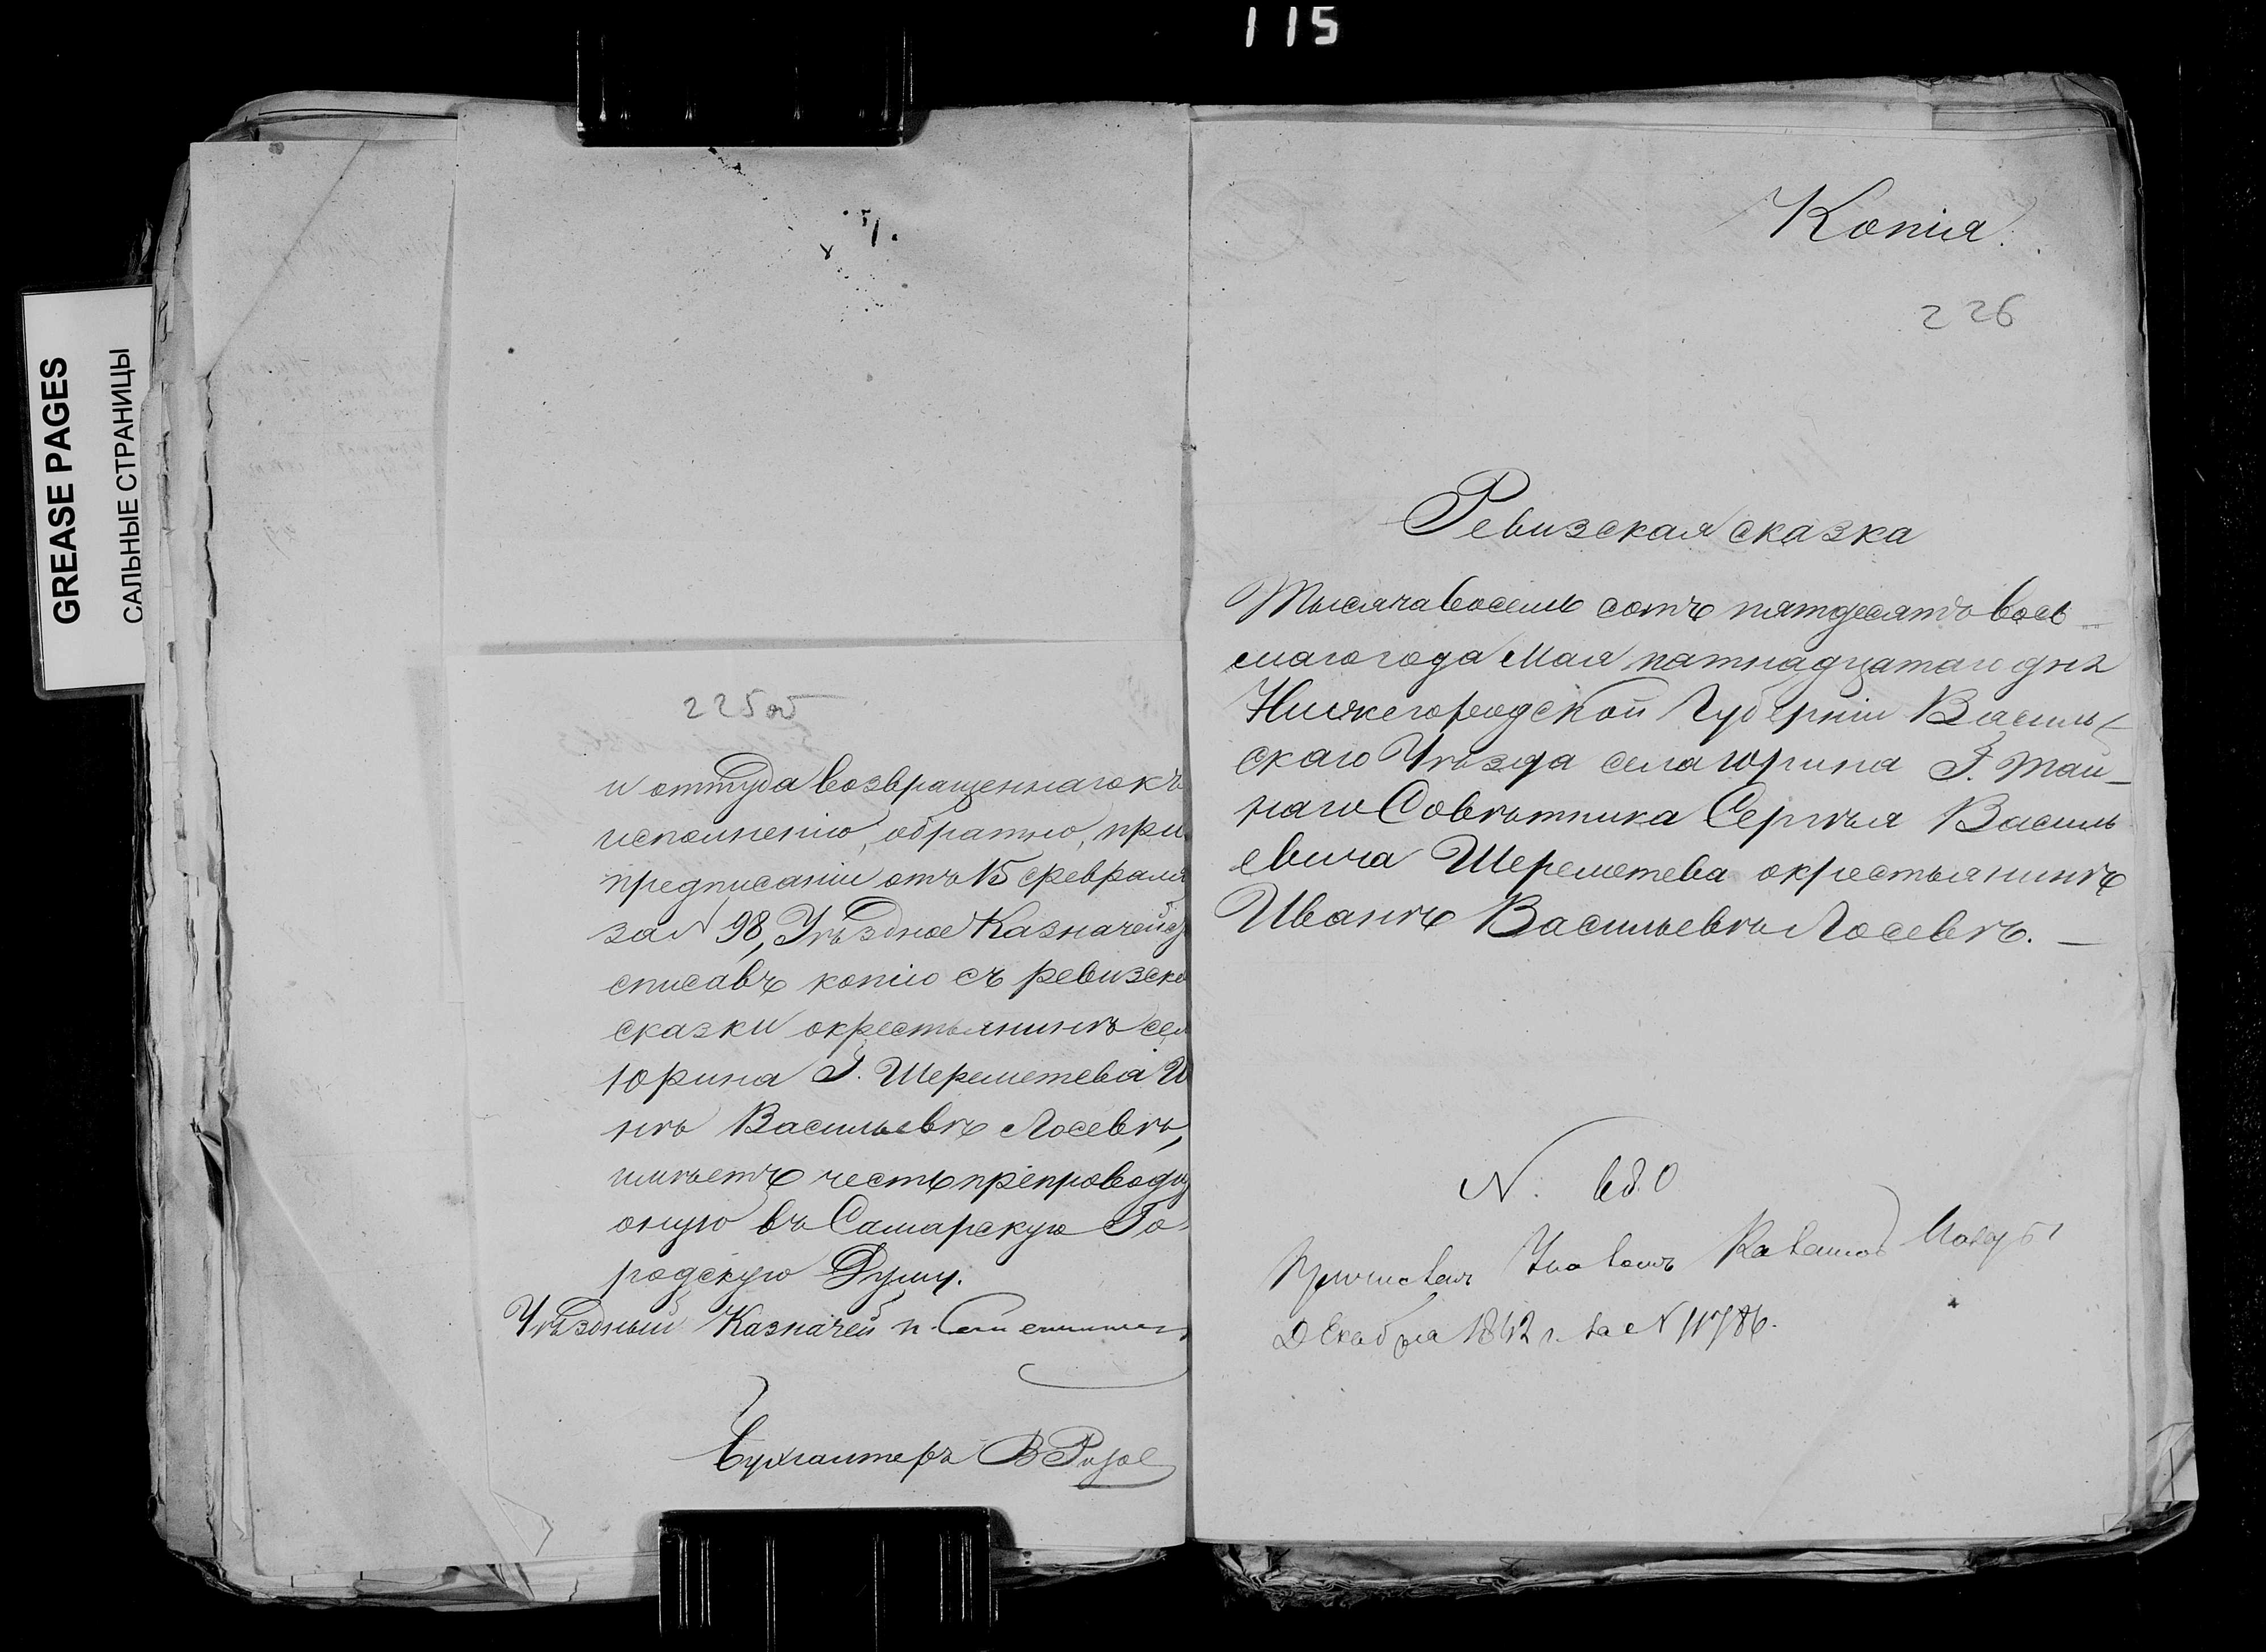 115
GREASE PAGES
САЛЬНЫЕ СТРАНИЦЫ
225 об
и оттуда возвращеннаго къ
исполненію, обратно, при
предписаніи отъ 15 февраля
за N 98, Уѣздное Казначейс
списавъ копію съ ревизско
сказки о крестьянинѣ сел
Юрина Г. Шереметева И
нѣ Васильевѣ Лосевѣ,
имѣетъ честь препроводи
оную въ Самарскую Го-
родскую Думу.
Уѣздный Казначей
Бухгалтеръ В
Копія.
226
Ревизская сказка
Тысяча восемь сотъ пятдесятъ вось-
маго года Мая пятнадцатаго дня
Нижегородской Губерніи Василь-
скаго Уѣзда села Юрина Г. Тай-
наго Совѣтника Сергѣя Василь
евича Шереметева о крестьянинѣ
Иванѣ Васильевѣ Лосевѣ. —
N.
Причисленъ Указомъ Казенной Палаты
Декабря 1862 г. за N 11786.